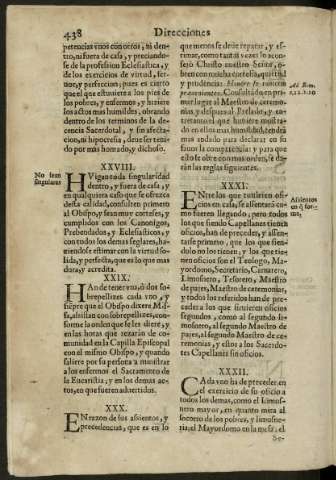 438
Direcciones
petencias vnos con otros, ni den-
tro, ni fuera de casa, y preciando-
se de la profesion Eclesiastica, y
de los exercicios de virtud, fer-
uor, y perfeccion; pues es cierto
que el que estuuiere a los pies de
los pobres, y enfermos, y hiziere
los actos mas humildes, obrando
dentro de los terminos de la de-
cencia Sacerdotal, y sin afecta-
cion, ni hipocresia, deue ser teni-
do por mas honrado, y dichoso.
XXVIII.
No sean
singulares
Huigan toda singularidad
dentro, y fuera de casa, y
en qualquiera caso que se ofrezca
desta calidad, consulten primero
al Obispo, y sean muy corteses, y
cumplidos con los Canonigos,
Prebendados, y Eclesiasticos, y
con todos los demas seglares, ha-
ziendose estimar con la virtud so-
lida, y perfecta, que es lo que mas
dora, y acredita.
XXIX.
Han de tener vno, ò dos so-
brepellizes cada vno, y
siẽpre que el Obispo dixere Mis-
sa, assistan con sobrepellizes, con-
forme la orden que se les diere, y
en las horas que rezarán de co-
munidad en la Capilla Episcopal
con el mismo Obispo, y quando
saliere por su persona a ministrar
a los enfermos el Sacramento de
la Eucaristia; y en los demas ac-
tos, en que fueren aduertidos.
XXX.
En razon de sus assientos, y
precedencias, que es en lo
que menos se deue reparar, y es-
timar, como tantas vezes lo acon-
sejò Christo nuestro Señor, o-
bren con mucha modestia, quietud
y prudencia.
Ad Rom.
mar lugar al Maestro de ceremo-
nias, y despues al Prelado, y en-
tretanto el que huuiere mostra-
do en ellos mas humildad, tendrá
mas andado para declarar en su
fauor la competencia; y para que
esto se obre con mas orden, se da-
rán las reglas siguientes.
XXXI.
Entre los que tuuieren ofi-
cios en casa, se assentarán co-
mo fueren llegando, pero todos
los que siendo Capellanes tienen
oficios, han de preceder, y assen-
tarse primero, que los que sien-
dolo no los tienen; y los que tie-
nen oficios son el Teologo, Ma-
yordomo, Secretario, Camarero,
Limosnero, Tesorero, Maestro
de pajes, Maestro de ceremonias,
y todos los referidos han de pre-
ceder a los que siruieren oficios
segundos, como al segundo li-
mosnero, al segundo Maestro de
pajes, al segundo Maestro de ce-
remonias, y estos a los Sacerdo-
tes Capellanes sin oficios.
Assientos
XXXII.
Cada vno ha de preceder en
el exercicio de su oficio a
todos los demas, como el Limos-
nero mayor, en quanto mira al
socorro de los pobres, y limosne-
ria; el Mayordomo en la mesa; el
Se-